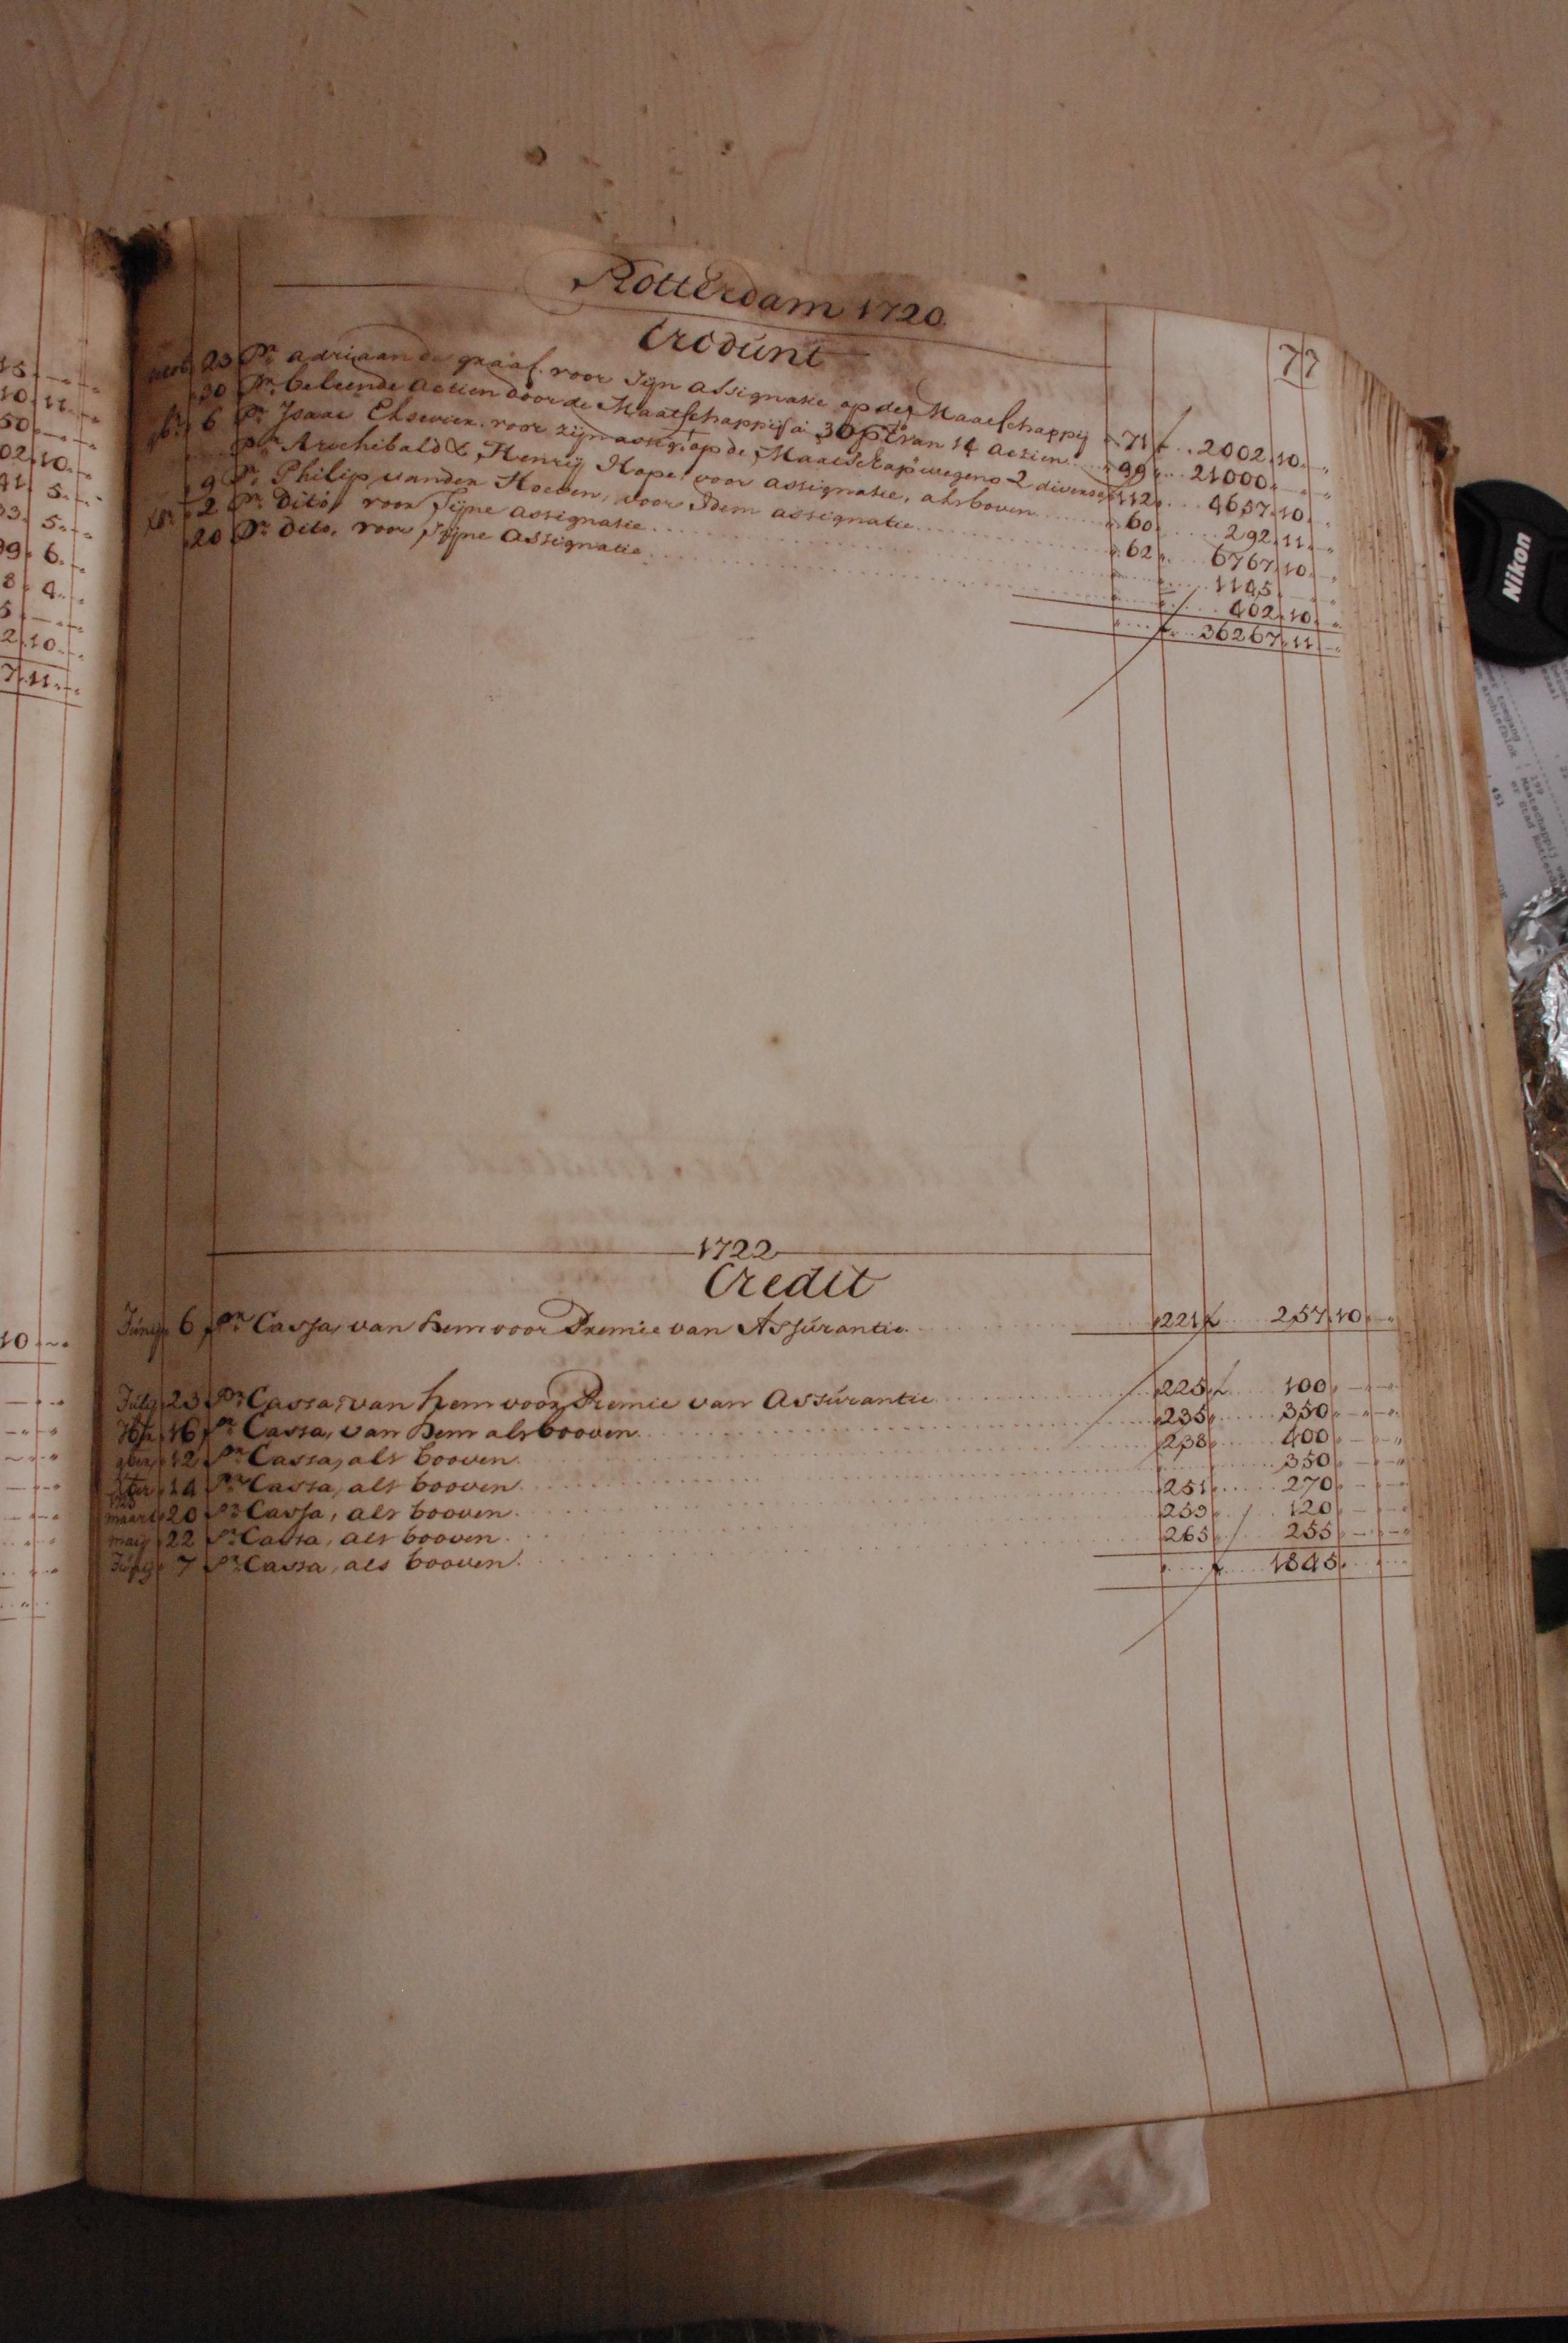 Rotterdam 1720
Credunt
77
23 Pr. adriaan de graaf. voor Sijn assignatie op dese Maatschappij 71 f 2002.10.-
30 Pr. beleende actien door de Maatschappij a 30 pCt van 14 actien 99 21000.-.-
6 Pr. Isaac Elsevier. voor zijn assign. op de Maatschap wegens 2 diverse 112 4657.10.-
Pr. Archibald & Henrij Hope voor assignatie, als boven 60 292.11.-
9 Pr. Philip vanden Hoeven, voor Idem assignatie 62 6767.10.-
2 Pr. Dito, voor Sijne assignatie 1145.-.-
20 Pr. Dito, voor Sijne Assignatie 402.10.-
36267.11.-
1722
Credit
Junij 6 Pr. Cassa, van hem voor Premie van Assurantie 221 f 257.10.-
Julij 23 Pr. Cassa, van hem voor Premie van Assurantie 225 f 100.-.-
16 Pr. Cassa, van hem als booven 235 350.-.-
9ber 12 Pr. Cassa, als booven 238 400.-.-
Xber 14 Pr. Cassa, als booven 350.-.-
1723
maart 20 Pr. Cassa, als booven 251 270.-.-
maij 22 Pr. Cassa, als booven 259 120.-.-
Junij 7 Pr. Cassa, als booven 265 255.-.-
1845.
Nikon
15.-.-
10.11.-
50.-.-
02.10.-
41.5.-
33.5.-
99.6.-
8.4.-
5.-.-
2.10.-
7.11.-
10.-
toegang
archiefblok
199
Maatschappij
451